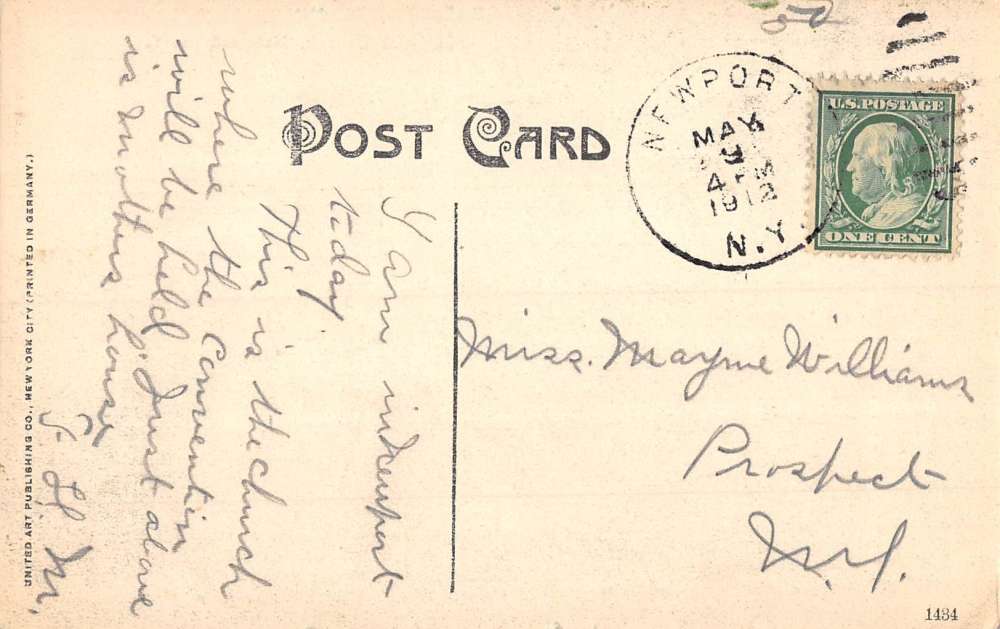 POST CARD
NEWPORT
MAY
9
4 PM
1912
N.Y.
U.S. POSTAGE
ONE CENT
I am in Newport
today
This is the church
where the Convention
will be held. Just above
is Mothers house
H. M.
Miss. Mayme Williams
Prospect
N.Y.
UNITED ART PUBLISHING CO., NEW YORK CITY (PRINTED IN GERMANY.)
1434